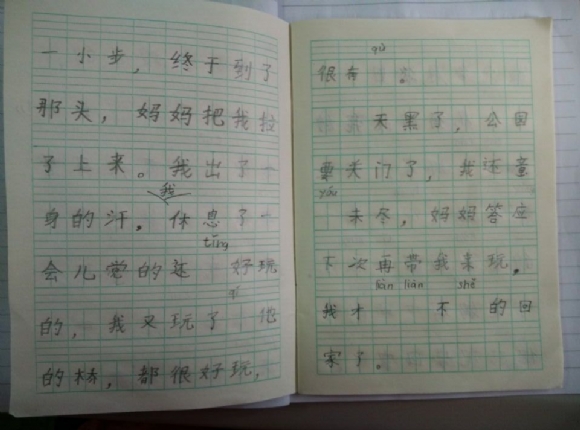 一小步，终于到了
那头，妈妈把我拉
了上来。我出了一
我
身的汗，休息了一
tǐng
会儿觉的还 好玩
qí
的，我又玩了 他
的 ，都很好玩，
qù
很有 。
天黑了，公园
要关门了，我还意
yóu
未尽，妈妈答应
下次再带我来玩。
liàn liàn shě
我才 不 的回
家了。